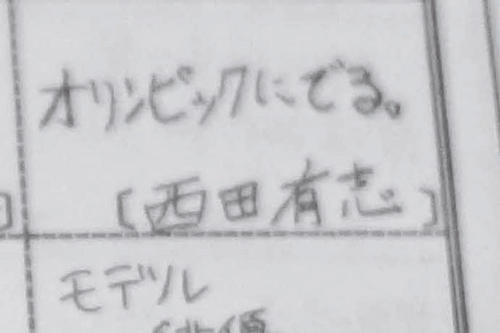 オリンピックにでる。
[西田有志]
モデル